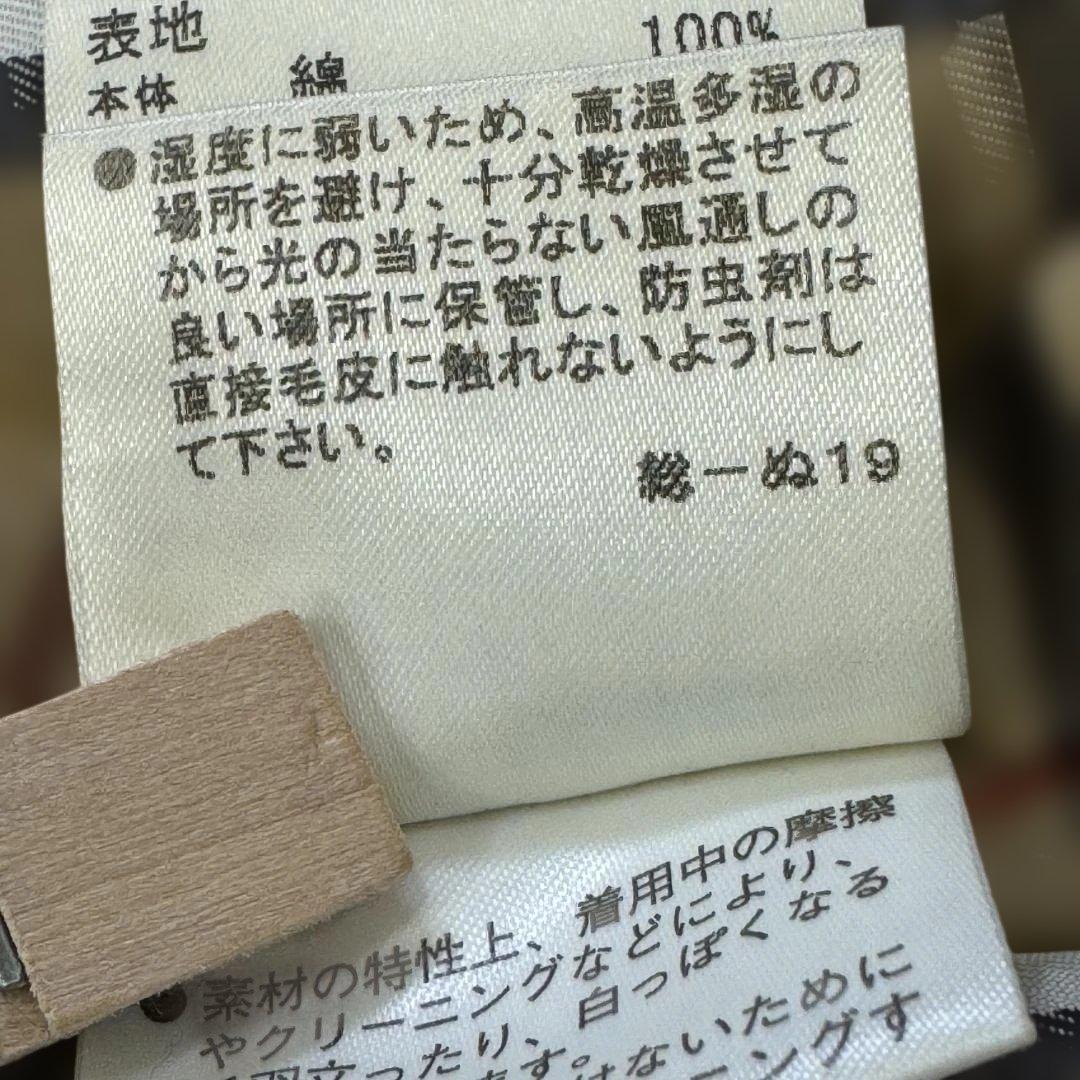 表地
本体 綿 100%
●湿度に弱いため、高温多湿の
場所を避け、十分乾燥させて
から光の当たらない風通しの
良い場所に保管し、防虫剤は
直接毛皮に触れないようにし
て下さい。
総ーぬ19
●素材の特性上、着用中の摩擦
やクリーニングなどにより、
羽立ったり、白っぽくなる
ます。
けないために
ニングす